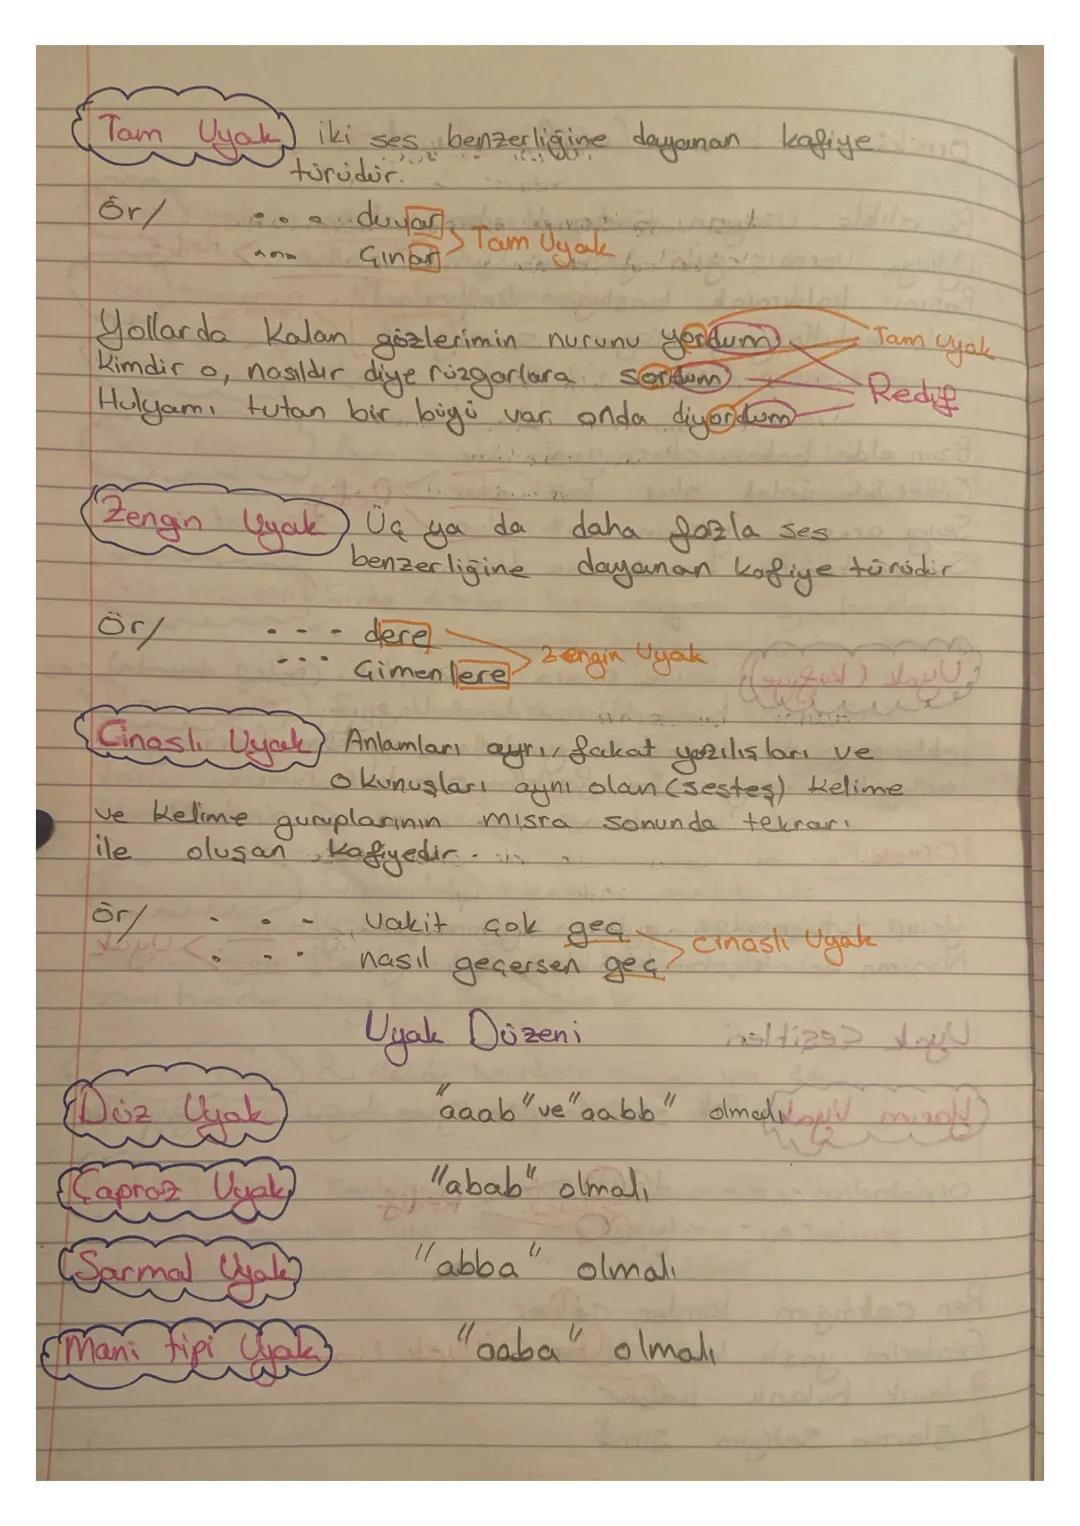 Tam Uyak iki ses benzerliğine dayanan kafiye
türüdür.
Ör/ . . . duyar
... Çınar
Tam Uyak
Yollarda kalan gözlerimin nurunu yordum
Tam uyak
Kimdir o, nasıldır diye rüzgarlara sordum
Redif
Hulyamı tutan bir büyü var onda diyordum
Zengin Uyak Üç ya da daha fazla ses
benzerliğine dayanan kafiye türüdir
Ör/ - - - dere
- - - Çimenlere
Zengin Uyak
Cinaslı Uyak Anlamları ayrı, fakat yazılışları ve
okunuşları aynı olan (sesteş) kelime
ve kelime guruplarının mısra sonunda tekrarı
ile oluşan kafiyedir.
Ör/ - . - vakit çok geç
. - . nasıl geçersen geç
cinaslı Uyak
Uyak Düzeni
Düz Uyak "aaab" ve "aabb" olmalı
Çapraz Uyak "abab" olmalı
Sarmal Uyak "abba" olmalı
Mani tipi Uyak "aaba" olmalı